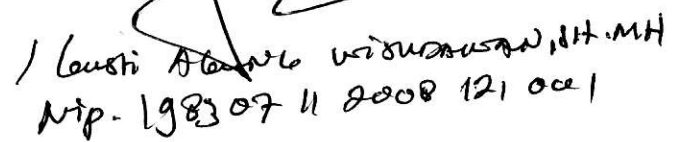 I Gusti Agung Wisudawan, SH.MH
Nip. 19830711 2008 121 001